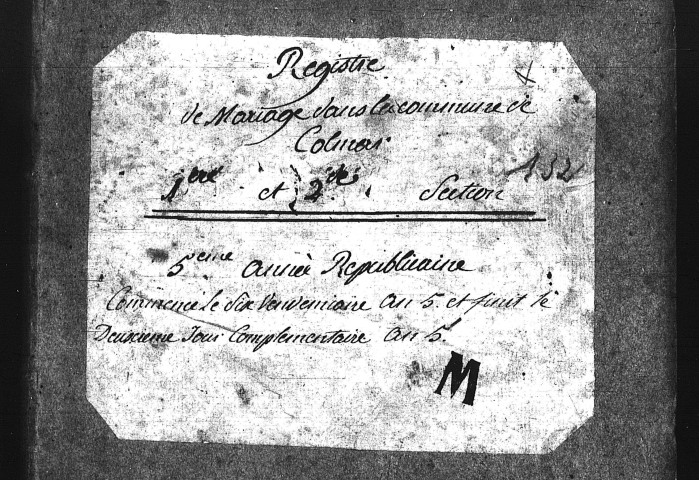 Registre
de Mariage dans la commune de
Colmar
1ere et 2de Section 132
5eme année Republicaine
Commence le Six Vendemiaire an 5. et finit le
Deuxieme Jour Complementaire an 5.
M